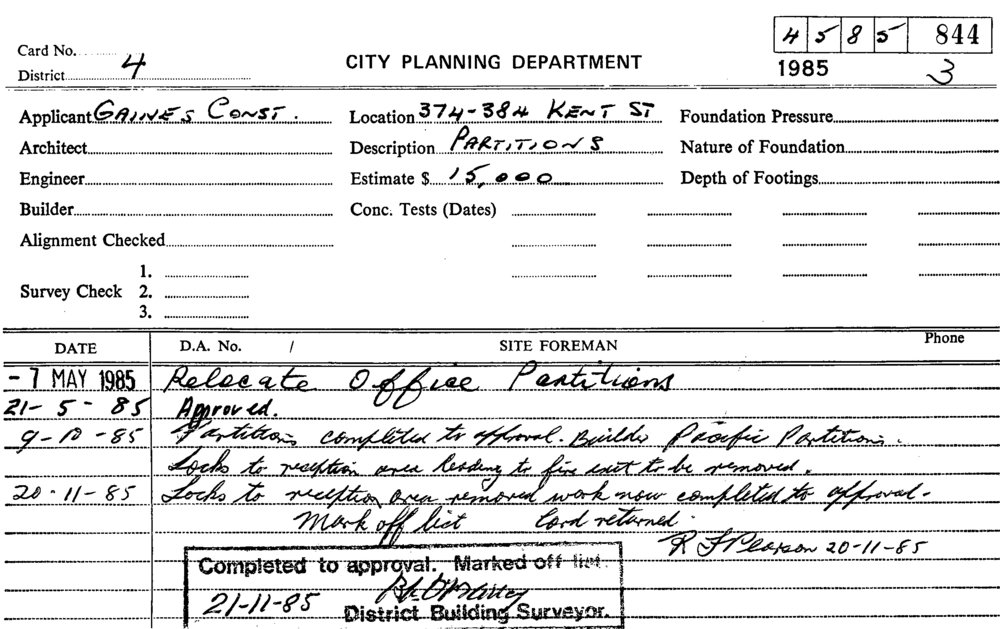 4 5 8 5 844
Card No.
CITY PLANNING DEPARTMENT
1985 3
District 4
Applicant GAINES CONST. Location 374-384 KENT ST Foundation Pressure
Architect Description PARTITIONS Nature of Foundation
Engineer Estimate $ 15,000 Depth of Footings
Builder Conc. Tests (Dates)
Alignment Checked
1.
Survey Check 2.
3.
DATE D.A. No. / SITE FOREMAN Phone
- 7 MAY 1985 Relocate Office Partitions
21-5-85 Approved.
9-10-85 Partitions completed to approval. Builder Pacific Partitions.
Locks to reception area leading to fire exit to be removed.
20-11-85 Locks to reception area removed work now completed to approval.
Mark off list Card returned.
R F Pearson 20-11-85
Completed to approval. Marked off list.
21-11-85
District Building Surveyor.